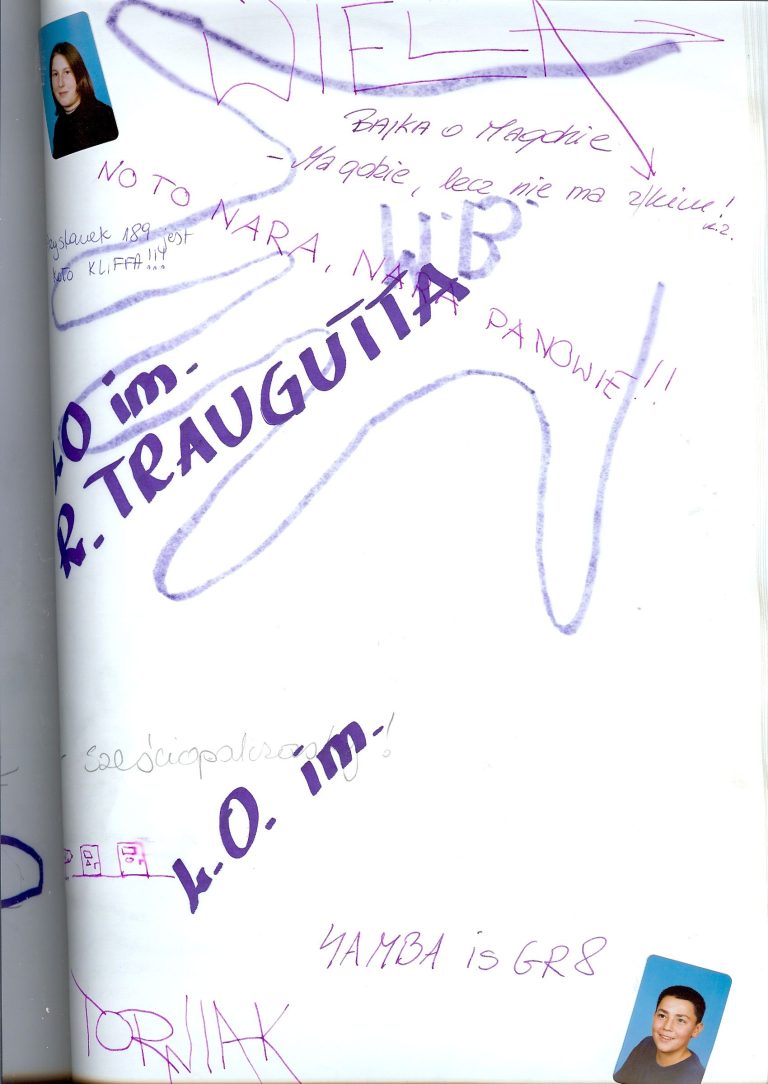 WIELA
BAJKA O Magdzie
- Magdzie, lecz nie ma z kim!
K.Z.
NO TO NARA, NARA PANOWIE!!
W.B.
Przystanek 189 jest
koło KLIFFA!!!
L.O im.
R. TRAUGUTTA
- sześciopakzoasty!
L.O. im.
YAMBA is GR8
TORNIAK